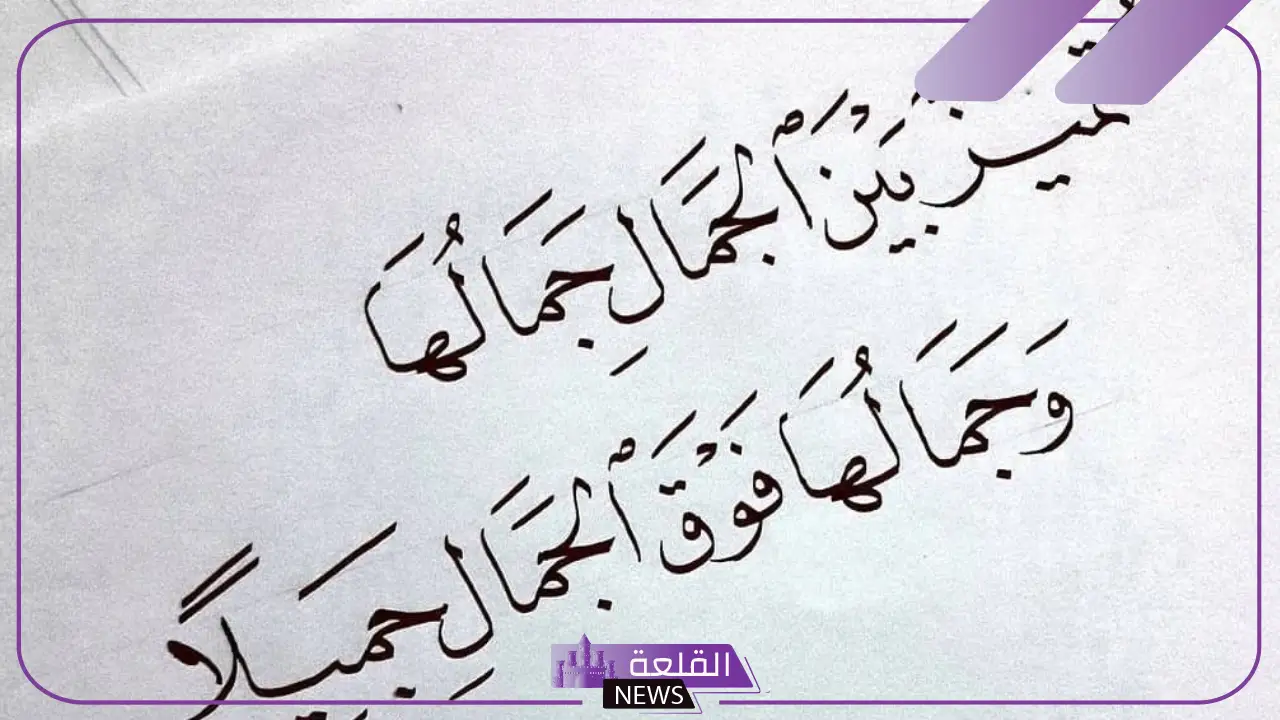 بَيْنَ ٱلجَمَالِ جَمَالُهَا
وَجَمَالُهَا فَوْقَ ٱلجَمَالِ جَمِيَلاً
القلعة
NEWS